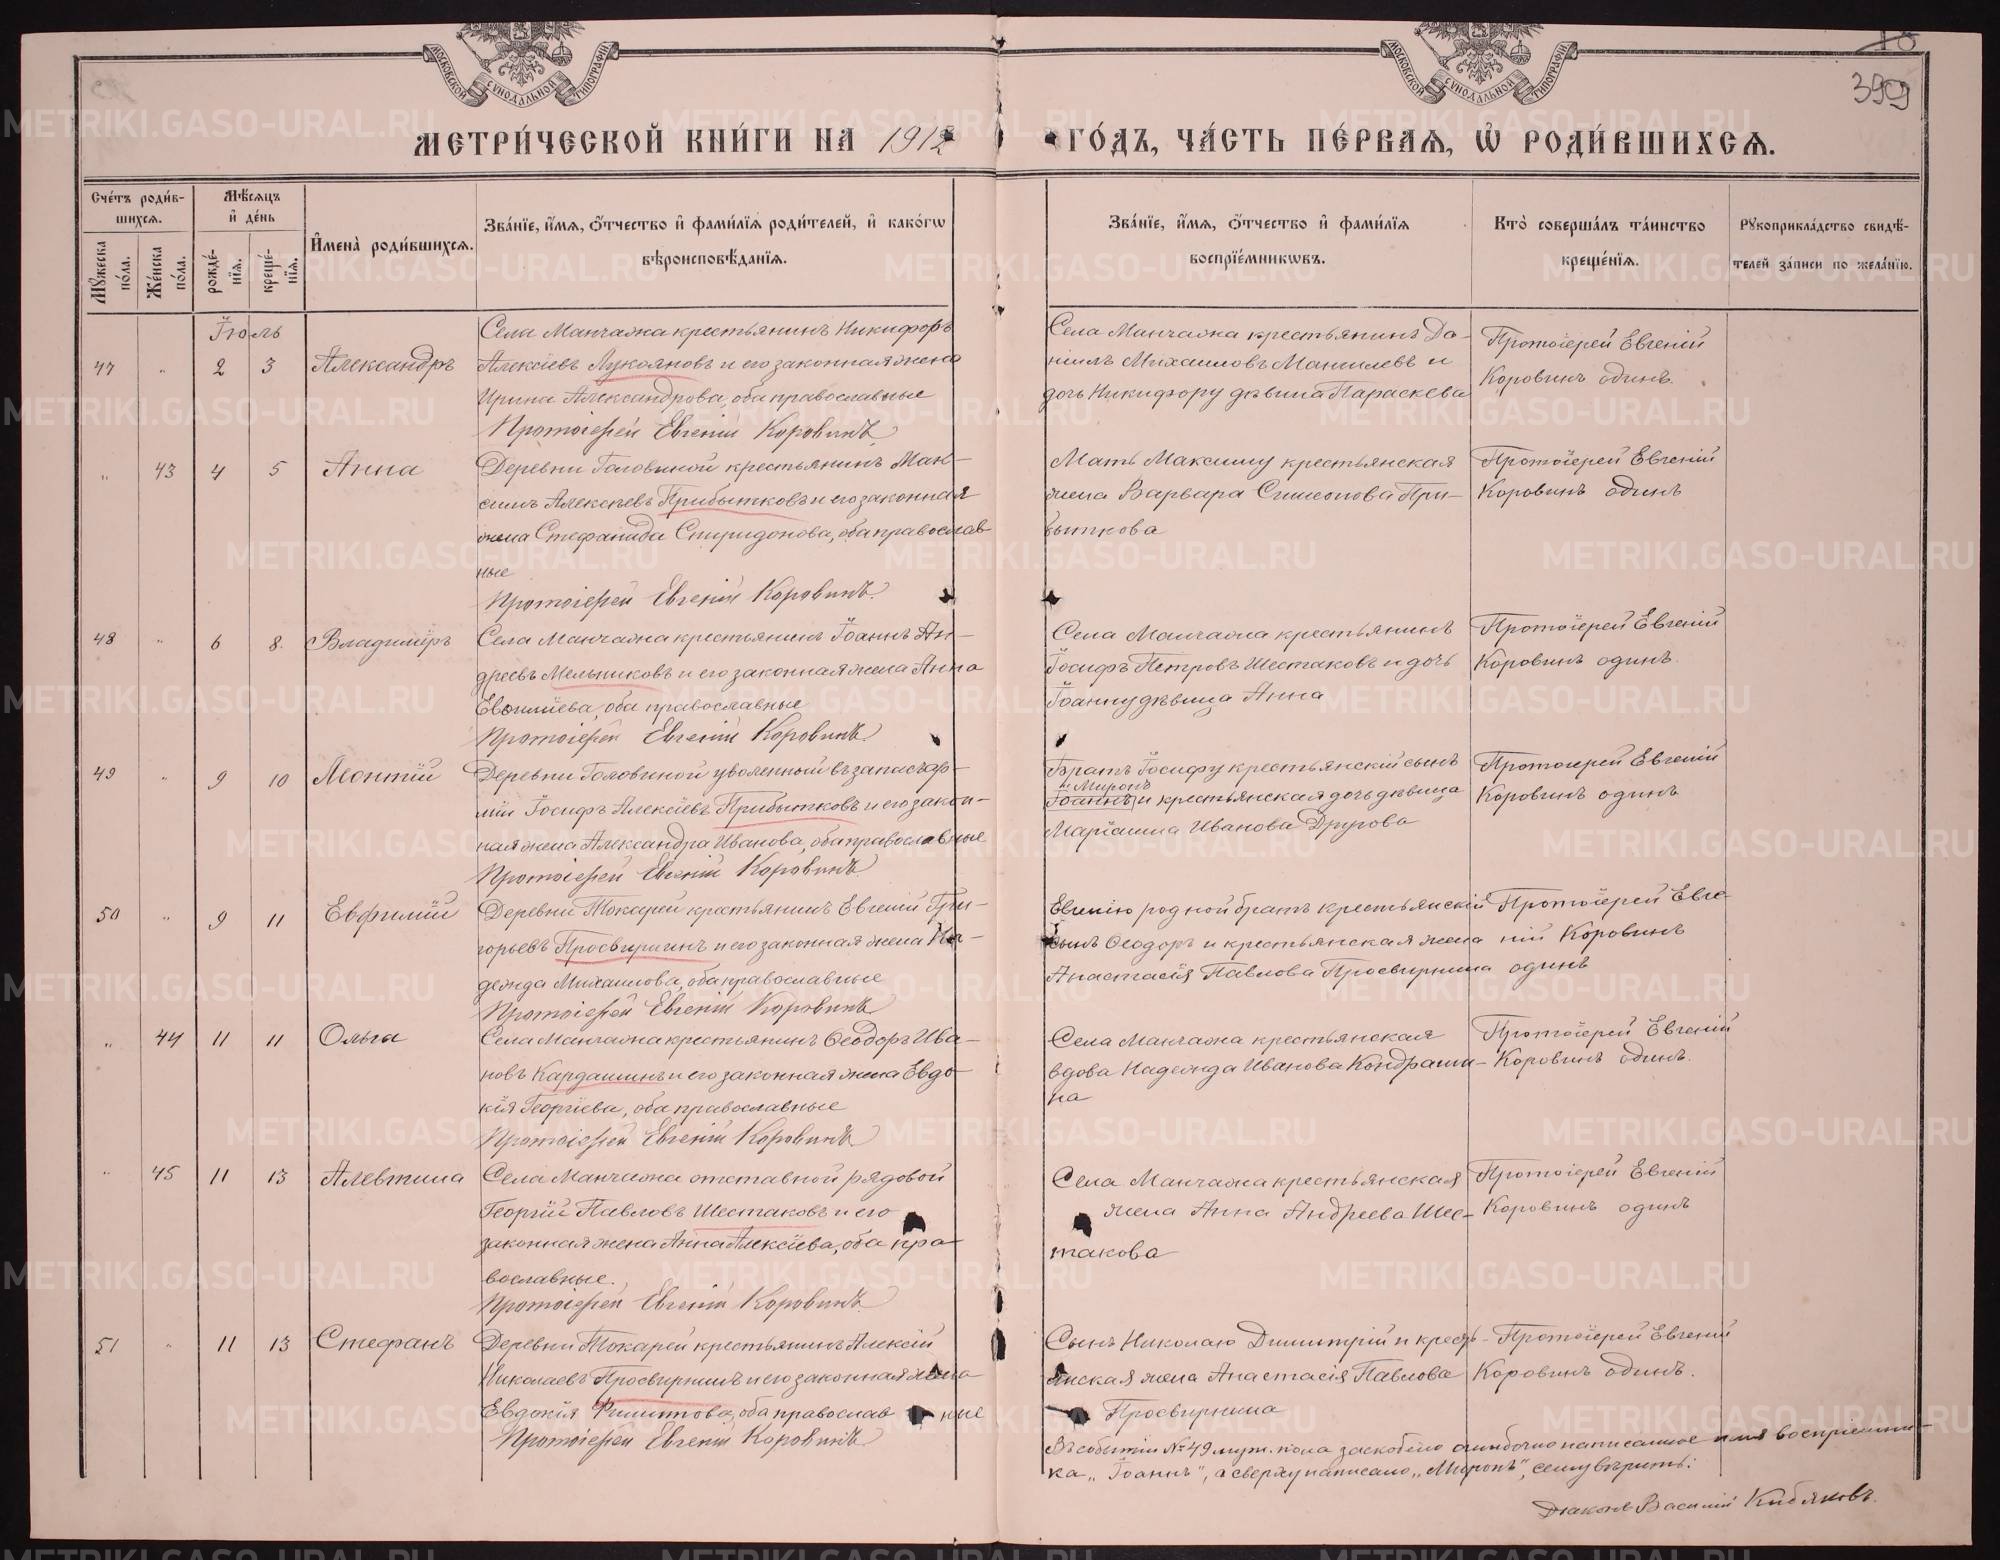 МОСКОВСКОЙ СѴНОДАЛЬНОЙ ТИПОГРАФІИ
МОСКОВСКОЙ СѴНОДАЛЬНОЙ ТИПОГРАФІИ
399
МЕТРИ́ЧЕСКОЙ КНИ́ГИ НА 1912 ГО́ДЪ, ЧА́СТЬ ПЕ́РВАѦ, Ѡ҆ РОДИ́ВШИХСѦ.
Сче́тъ роди́в-
шихсѧ.
Мѣ́сѧцъ
и҆ де́нь
Мꙋ́жеска по́ла.
Же́нска по́ла.
рожде́-нїѧ.
креще́-нїѧ.
И҆мена̀ роди́вшихсѧ.
Зва́нїе, и҆́мѧ, ѻ҆́тчество и҆ фами́лїѧ роди́телей, и҆ како́гѡ
вѣроисповѣ́данїѧ.
Зва́нїе, и҆́мѧ, ѻ҆́тчество и҆ фами́лїѧ
воспрїе́мникѡвъ.
Кто̀ соверша́лъ та́инство
креще́нїѧ.
Рꙋкоприкла́дство свидѣ́-
телей за́писи по жела́нїю.
Іюль
47 " 2 3 Александръ
Села Манчажа крестьянинъ Никифоръ
Алексіевъ Лукояновъ и его законная жена
Ирина Александрова, оба православные
Протоіерей Евгеній Коровинъ
Села Манчажа крестьянинъ Да-
ніилъ Михаиловъ Мангилевъ и
дочь Никифору дѣвица Параскева
Протоіерей Евгеній
Коровинъ одинъ.
" 43 4 5 Анна
Деревни Головиной крестьянинъ Мак-
симъ Алексѣевъ Прибытковъ и его законная
жена Стефанида Спиридонова, оба православ
ные
Протоіерей Евгеній Коровинъ.
Мать Максиму крестьянская
жена Варвара Симеонова При-
быткова
Протоіерей Евгеній
Коровинъ одинъ
48 " 6 8. Владиміръ
Села Манчажа крестьянинъ Іоаннъ Ан-
дреевъ Мельниковъ и его законная жена Анна
оба православные
Протоіерей Евгеній Коровинъ.
Села Манчажа крестьянинъ
Іосифъ Петровъ Шестаковъ и дочь
Іоанну дѣвица Анна
Протоіерей Евгеній
Коровинъ одинъ.
49 " 9 10 Леонтій
Деревни Головиной уволенный въ запасъ ар-
міи Іосифъ Алексіевъ Прибытковъ и его закон-
ная жена Александра Иванова, оба православные
Протоіерей Евгеній Коровинъ
Братъ Іосифу крестьянскій сынъ
Миронъ
Іоаннъ и крестьянская дочь дѣвица
Маріанна Иванова Другова
Протоіерей Евгеній
Коровинъ одинъ
50 " 9 11 Евфимій
Деревни Токарей крестьянинъ Евгеній Гри-
горьевъ Просвирнинъ и его законная жена На-
дежда Михаилова, оба православные
Протоіерей Евгеній Коровинъ
Евгенію родной братъ крестьянскій
сынъ Ѳеодоръ и крестьянская жена
Анастасія Павлова Просвирнина
Протоіерей Евге-
ній Коровинъ
одинъ
" 44 11 11 Ольга
Села Манчажа крестьянинъ Ѳеодоръ Ива-
новъ Кардашинъ и его законная жена Евдо-
кія Георгіева, оба православные
Протоіерей Евгеній Коровинъ
Села Манчажа крестьянская
вдова Надежда Иванова Кондраши-
на
Протоіерей Евгеній
Коровинъ одинъ.
" 45 11 13 Алевтина
Села Манчажа отставной рядовой
Георгій Павловъ Шестаковъ и его
законная жена Анна Алексіева, оба пра-
вославные.
Протоіерей Евгеній Коровинъ
Села Манчажа крестьянская
жена Анна Андреева Шес-
такова
Протоіерей Евгеній
Коровинъ одинъ
51 " 11 13 Стефанъ
Деревни Токарей крестьянинъ Алексій
Николаевъ Просвирнинъ и его законная жена
Евдокія Филиппова, оба православ ные
Протоіерей Евгеній Коровинъ
Сынъ Николаю Димитрій и кресть-
янская жена Анастасія Павлова
Просвирнина
Протоіерей Евгеній
Коровинъ одинъ.
Въ событіи № 49 муж. пола заскоблено ошибочно написанное имя воспріемни-
ка „Іоаннъ", а сверху написано „Миронъ", сему вѣрить:
Діаконъ Василій Кибяковъ.
METRIKI.GASO-URAL.RU